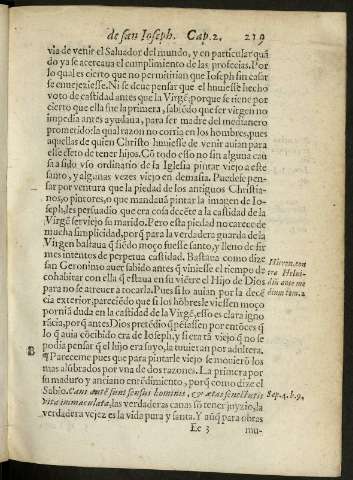 de san Ioseph. Cap. 2. 219
via de venir el Saluador del mundo, y en particular quã
do ya se acercaua el cumplimiento de las profecias. Por
lo qual es cierto que no permitirian que Ioseph sin casar
se enuejeziesse. Ni se deue pensar que el huuiesse hecho
voto de castidad antes que la Virgẽ; porque se tiene por
cierto que ella fue la primera, sabiẽdo que ser virgen no
impedia antes ayudaua, para ser madre del medianero
prometido: la qual razon no corria en los hombres, pues
aquellas de quien Christo huuiesse de venir auian para
esse efeto de tener hijos. Cõ todo esso no sin alguna cau
sa a sido vso ordinario de la Iglesia pintar viejo a este
santo, y algunas vezes viejo en demasia. Puedese pen-
sar por ventura que la piedad de los antiguos Christia-
nos, o pintores, o que mandauã pintar la imagen de Io-
seph, les persuadio que era cosa decẽte a la castidad de la
Virgẽ ser viejo su marido. Pero esta piedad no carece de
mucha simplicidad, porq̃ para la verdadera guarda de la
Virgen bastaua q̃ siẽdo moço fuesse santo, y lleno de fir
mes intentos de perpetua castidad. Bastaua como dize
san Geronimo auer sabido antes q̃ viniesse el tiempo de
cohabitar con ella q̃ estaua en su viẽtre el Hijo de Dios
para no se atreuer a tocarla. Pues si lo auian por la decẽ
cia exterior, pareciẽdo que si los hõbres le viessen moço
pornià duda en la castidad de la Virgẽ, esso es clara igno
rãcia, porq̃ antes Dios pretẽdio q̃ pẽsassen por entonces q̃
lo q̃ auia cõcibido era de Ioseph, y si era tã viejo q̃ no se
podia pensar q̃ el hijo era suyo, la tuuieran por adultera.
B ¶ Pareceme pues que para pintarle viejo se mouierõ los
mas alũbrados por vna de dos razones. La primera por
su maduro y anciano entẽdimiento, porq̃ como dize el
Sabio. Cani autẽ sunt sensus hominis, & ætas senectutis
vita immaculata, las verdaderas canas sõ tener juyzio, la
verdadera vejez es la vida pura y santa. Y aũq̃ para obras
Ee 3 mu-
Hieron. con
tra Helui-
diũ ante me
dium tom. 2
Sap. 4. b. 9.